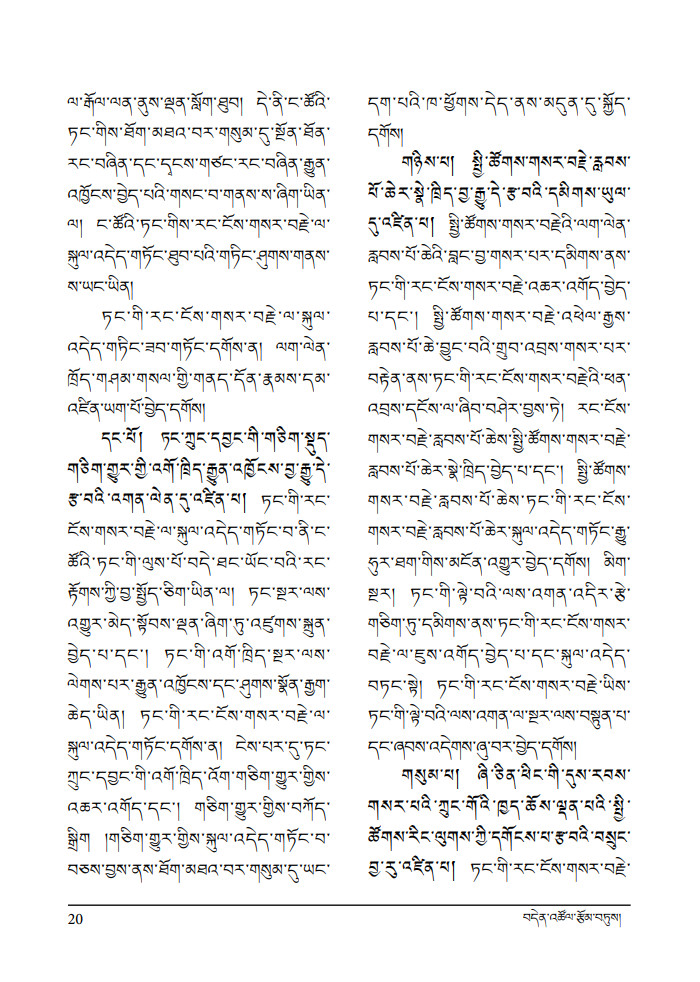 ལ་རྒོལ་ལན་ནུས་ལྡན་སློག་ཐུབ། དེ་ནི་ང་ཚོའི་
ཏང་གིས་ཐོག་མཐའ་བར་གསུམ་དུ་སྔོན་ཐོན་
རང་བཞིན་དང་དྭངས་གཙང་རང་བཞིན་རྒྱུན་
འཁྱོངས་བྱེད་པའི་གསང་བ་གནས་ས་ཞིག་ཡིན་
ལ། ང་ཚོའི་ཏང་གིས་རང་ངོས་གསར་བརྗེ་ལ་
སྐུལ་འདེད་གཏོང་ཐུབ་པའི་གཏིང་ཤུགས་གནས་
ས་ཡང་ཡིན།
ཏང་གི་རང་ངོས་གསར་བརྗེ་ལ་སྐུལ་
འདེད་གཏིང་ཟབ་གཏོང་དགོས་ན། ལག་ལེན་
ཁྲོད་གཤམ་གསལ་གྱི་གནད་དོན་རྣམས་དམ་
འཛིན་ཡག་པོ་བྱེད་དགོས།
དང་པོ། ཏང་ཀྲུང་དབྱང་གི་གཅིག་སྡུད་
གཅིག་གྱུར་གྱི་འགོ་ཁྲིད་རྒྱུན་འཁྱོངས་བྱ་རྒྱུ་དེ་
རྩ་བའི་འགན་ལེན་དུ་འཛིན་པ། ཏང་གི་རང་
ངོས་གསར་བརྗེ་ལ་སྐུལ་འདེད་གཏོང་བ་ནི་ང་
ཚོའི་ཏང་གི་ལུས་པོ་བདེ་ཐང་ཡོང་བའི་རང་
རྟོགས་ཀྱི་བྱ་སྤྱོད་ཅིག་ཡིན་ལ། ཏང་སྔར་ལས་
འགྱུར་མེད་སྟོབས་ལྡན་ཞིག་ཏུ་འཛུགས་སྐྲུན་
བྱེད་པ་དང་། ཏང་གི་འགོ་ཁྲིད་སྔར་ལས་
ལེགས་པར་རྒྱུན་འཁྱོངས་དང་ཤུགས་སྣོན་རྒྱག་
ཆེད་ཡིན། ཏང་གི་རང་ངོས་གསར་བརྗེ་ལ་
སྐུལ་འདེད་གཏོང་དགོས་ན། ངེས་པར་དུ་ཏང་
ཀྲུང་དབྱང་གི་འགོ་ཁྲིད་འོག་གཅིག་གྱུར་གྱིས་
འཆར་འགོད་དང་། གཅིག་གྱུར་གྱིས་བཀོད་
སྒྲིག །གཅིག་གྱུར་གྱིས་སྐུལ་འདེད་གཏོང་བ་
བཅས་བྱས་ནས་ཐོག་མཐའ་བར་གསུམ་དུ་ཡང་
དག་པའི་ཁ་ཕྱོགས་དེད་ནས་མདུན་དུ་སྐྱོད་
དགོས།
གཉིས་པ། སྤྱི་ཚོགས་གསར་བརྗེ་རླབས་
པོ་ཆེར་སྣེ་ཁྲིད་བྱ་རྒྱུ་དེ་རྩ་བའི་དམིགས་ཡུལ་
དུ་འཛིན་པ། སྤྱི་ཚོགས་གསར་བརྗེའི་ལག་ལེན་
རླབས་པོ་ཆེའི་བླང་བྱ་གསར་པར་དམིགས་ནས་
ཏང་གི་རང་ངོས་གསར་བརྗེ་འཆར་འགོད་བྱེད་
པ་དང་། སྤྱི་ཚོགས་གསར་བརྗེ་འཕེལ་རྒྱས་
རླབས་པོ་ཆེ་བྱུང་བའི་གྲུབ་འབྲས་གསར་པར་
བརྟེན་ནས་ཏང་གི་རང་ངོས་གསར་བརྗེའི་ཕན་
འབྲས་དངོས་ལ་ཞིབ་བཤེར་བྱས་ཏེ། རང་ངོས་
གསར་བརྗེ་རླབས་པོ་ཆེས་སྤྱི་ཚོགས་གསར་བརྗེ་
རླབས་པོ་ཆེར་སྣེ་ཁྲིད་བྱེད་པ་དང་། སྤྱི་ཚོགས་
གསར་བརྗེ་རླབས་པོ་ཆེས་ཏང་གི་རང་ངོས་
གསར་བརྗེ་རླབས་པོ་ཆེར་སྐུལ་འདེད་གཏོང་རྒྱུ་
ཧུར་ཐག་གིས་མངོན་འགྱུར་བྱེད་དགོས། མིག་
སྔར། ཏང་གི་ལྟེ་བའི་ལས་འགན་འདིར་རྩེ་
གཅིག་ཏུ་དམིགས་ནས་ཏང་གི་རང་ངོས་གསར་
བརྗེ་ལ་ཇུས་འགོད་བྱེད་པ་དང་སྐུལ་འདེད་
བཏང་སྟེ། ཏང་གི་རང་ངོས་གསར་བརྗེ་ཡིས་
ཏང་གི་ལྟེ་བའི་ལས་འགན་ལ་སྔར་ལས་བསྟུན་པ་
དང་ཞབས་འདེགས་ཞུ་བར་བྱེད་དགོས།
གསུམ་པ། ཞི་ཅིན་ཕིང་གི་དུས་རབས་
གསར་པའི་ཀྲུང་གོའི་ཁྱད་ཆོས་ལྡན་པའི་སྤྱི་
ཚོགས་རིང་ལུགས་ཀྱི་དགོངས་པ་རྩ་བའི་བསྲུང་
བྱ་རུ་འཛིན་པ། ཏང་གི་རང་ངོས་གསར་བརྗེ་
20
བདེན་འཚོལ་རྩོམ་བཏུས།